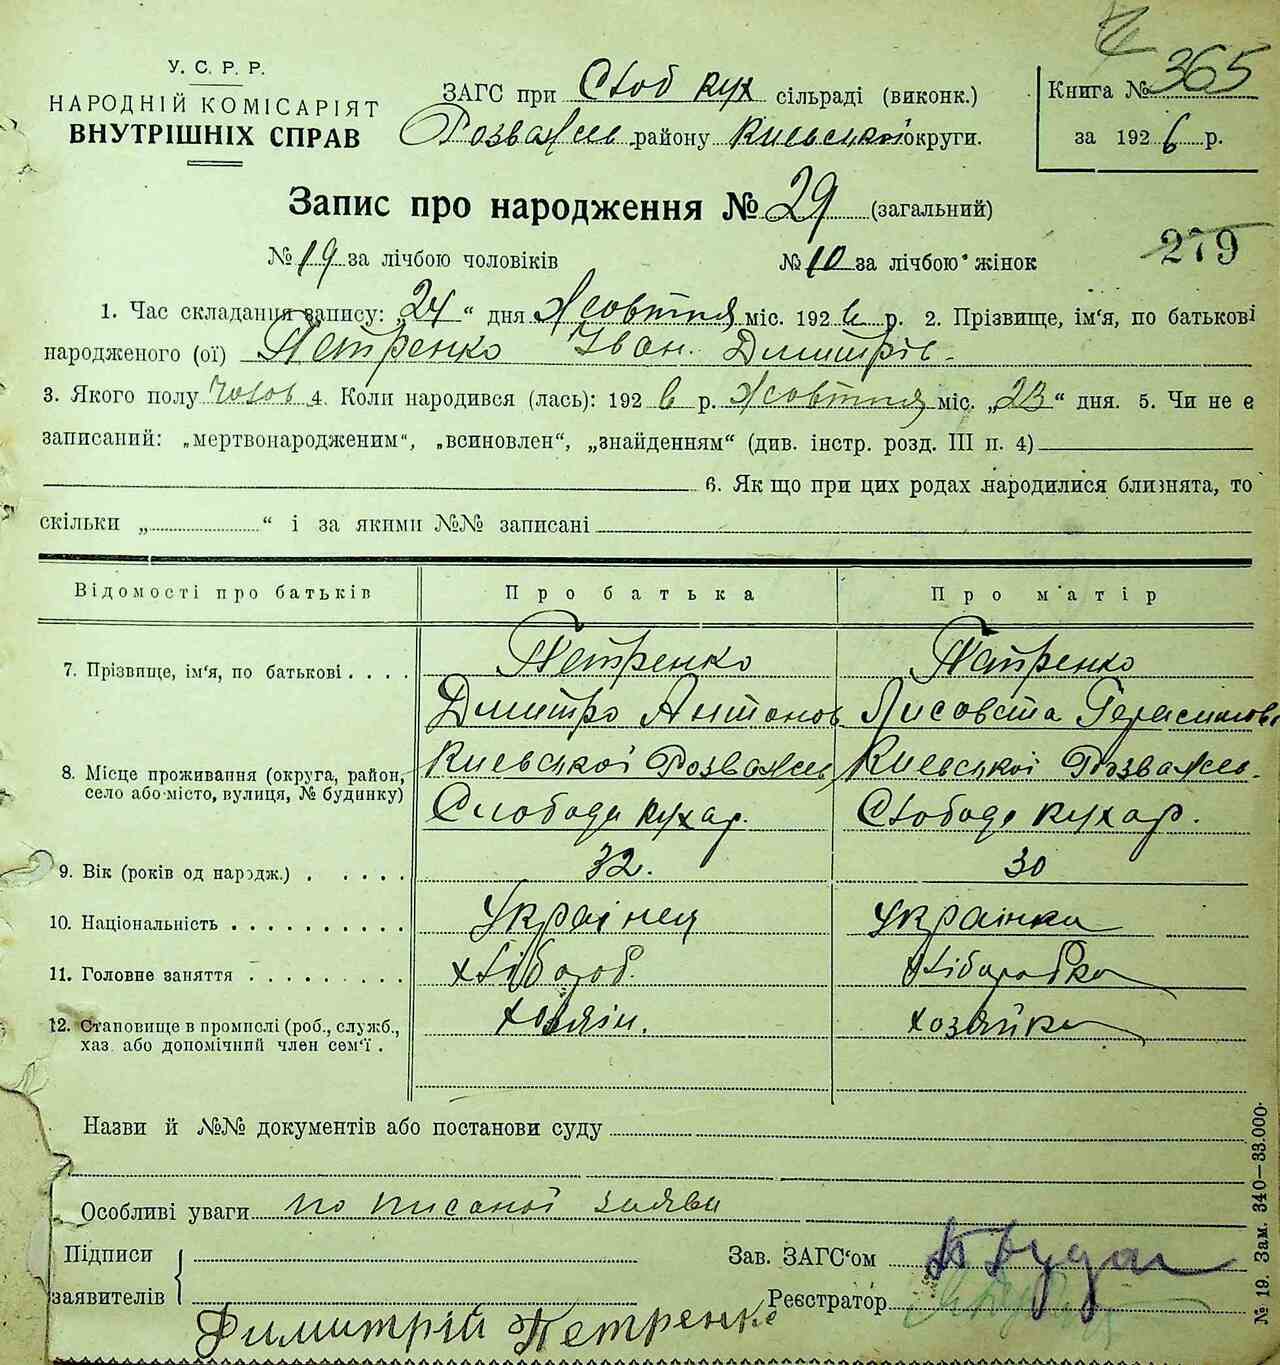 У. С. Р. Р.
НАРОДНІЙ КОМІСАРІЯТ
ВНУТРІШНІХ СПРАВ
ЗАГС при Слоб кух сільраді (виконк.)
Розважев району Киевської округи.
Книга № 365
за 1926 р.
Запис про народження № 29 (загальний)
№ 19 за лічбою чоловіків № 10 за лічбою жінок
279
1. Час складання запису: „24“ дня Жовтня міс. 1926 р. 2. Прізвище, ім'я, по батькові
народженого (ої) Петренко Іван. Дмитрів.
3. Якого полу чолов 4. Коли народився (лась): 1926 р. Жовтня міс. „23“ дня. 5. Чи не є
записаний: „мертвонародженим“, „всиновлен“, „знайденням“ (див. інстр. розд. III п. 4)
6. Як що при цих родах народилися близнята, то
скільки „ “ і за якими №№ записані
Відомості про батьків Про батька Про матір
7. Прізвище, ім'я, по батькові . . . . Петренко Петренко
Дмитро Антонов Лисовета Герасимов
8. Місце проживання (округа, район, Киевської Розважев Киевської Розважев.
село або місто, вулиця, № будинку) Слобода кухар. Слобода кухар.
9. Вік (років од народж.) . . . . . 32. 30
10. Національність . . . . . . . . . . Українец Українка
11. Головне заняття . . . . . . . . . хлібороб. хліборобка
12. Становище в промислі (роб., служб., хозяін. хозяйка
хаз. або допомічний член сем'ї .
Назви й №№ документів або постанови суду
Особливі уваги по писаної заяви
Підписи Зав. ЗАГС'ом
заявителів Реєстратор
Димитрій Петренко
№ 19. Зам. 340—33.000.